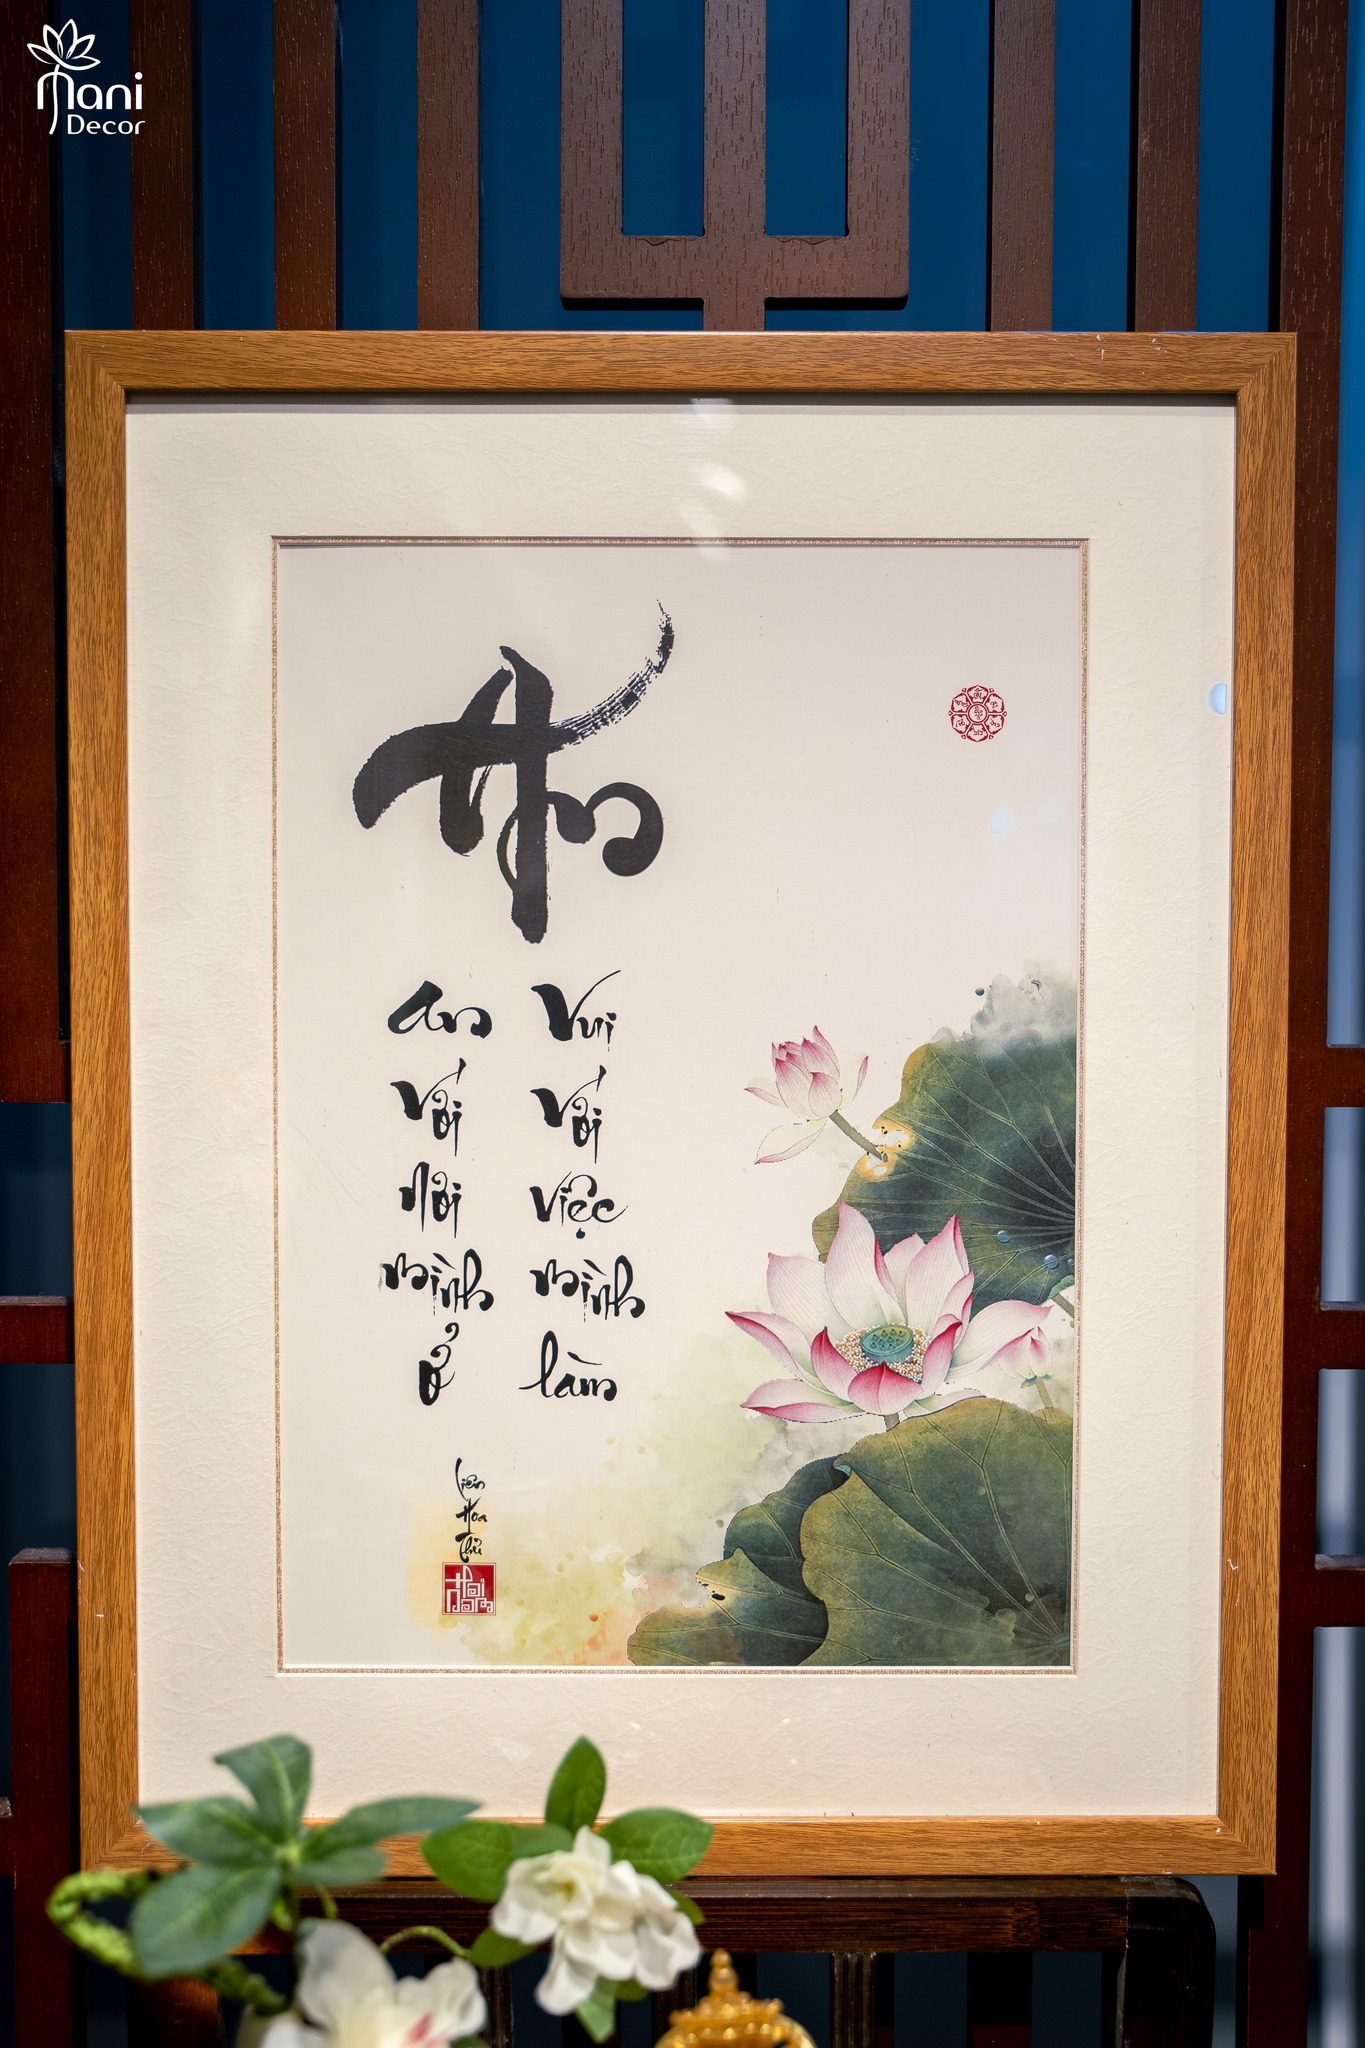 Mani
Decor
An
An
với
nơi
mình
ở
Vui
với
việc
mình
làm
Liên
Hoa
Thủ